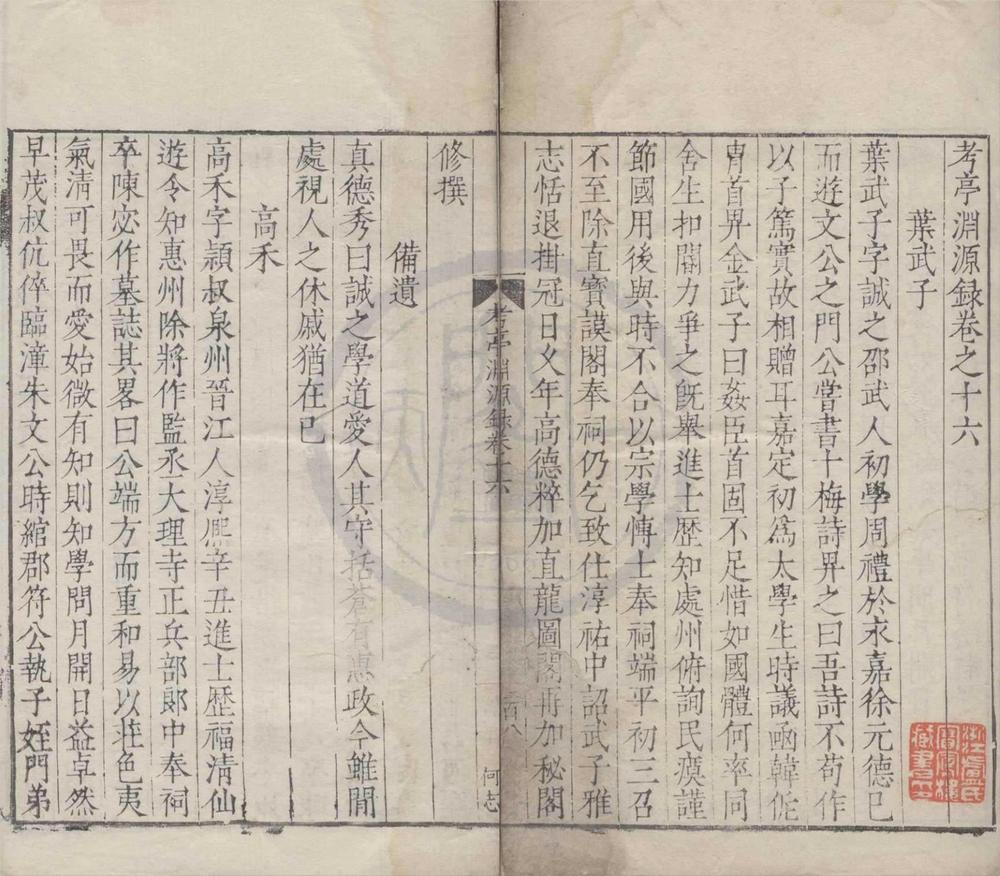 考亭淵源録卷之十六
葉武子
葉武子字誠之邵武人初學周禮於永嘉徐元德已
而遊文公之門公嘗書十梅詩畀之曰吾詩不苟作
以子篤實故相贈耳嘉定初爲太學生時議函韓侂
冑首畀金武子曰姦臣首固不足惜如國體何率同
舍生扣閽力爭之旣舉進士歷知處州俯詢民瘼謹
節國用後與時不合以宗學博士奉祠端平初三召
不至除直寶謨閣奉祠仍乞致仕淳祐中詔武子雅
志恬退掛冠日久年高德粹加直龍圖閣再加秘閣
考亭淵源錄卷十六
何志
修撰
備遺
真德秀曰誠之學道愛人其守括蒼有惠政今雖閒
處視人之休戚猶在己
高禾
高禾字穎叔泉州晉江人淳熈辛丑進士歷福清仙
遊令知惠州除將作監丞大理寺正兵部郞中奉祠
卒陳宓作墓誌其畧曰公端方而重和易以莊色夷
氣清可畏而愛始微有知則知學問月開日益卓然
早茂叔伉倅臨漳朱文公時綰郡符公執子姪門弟
浙江盧氏
藏書印